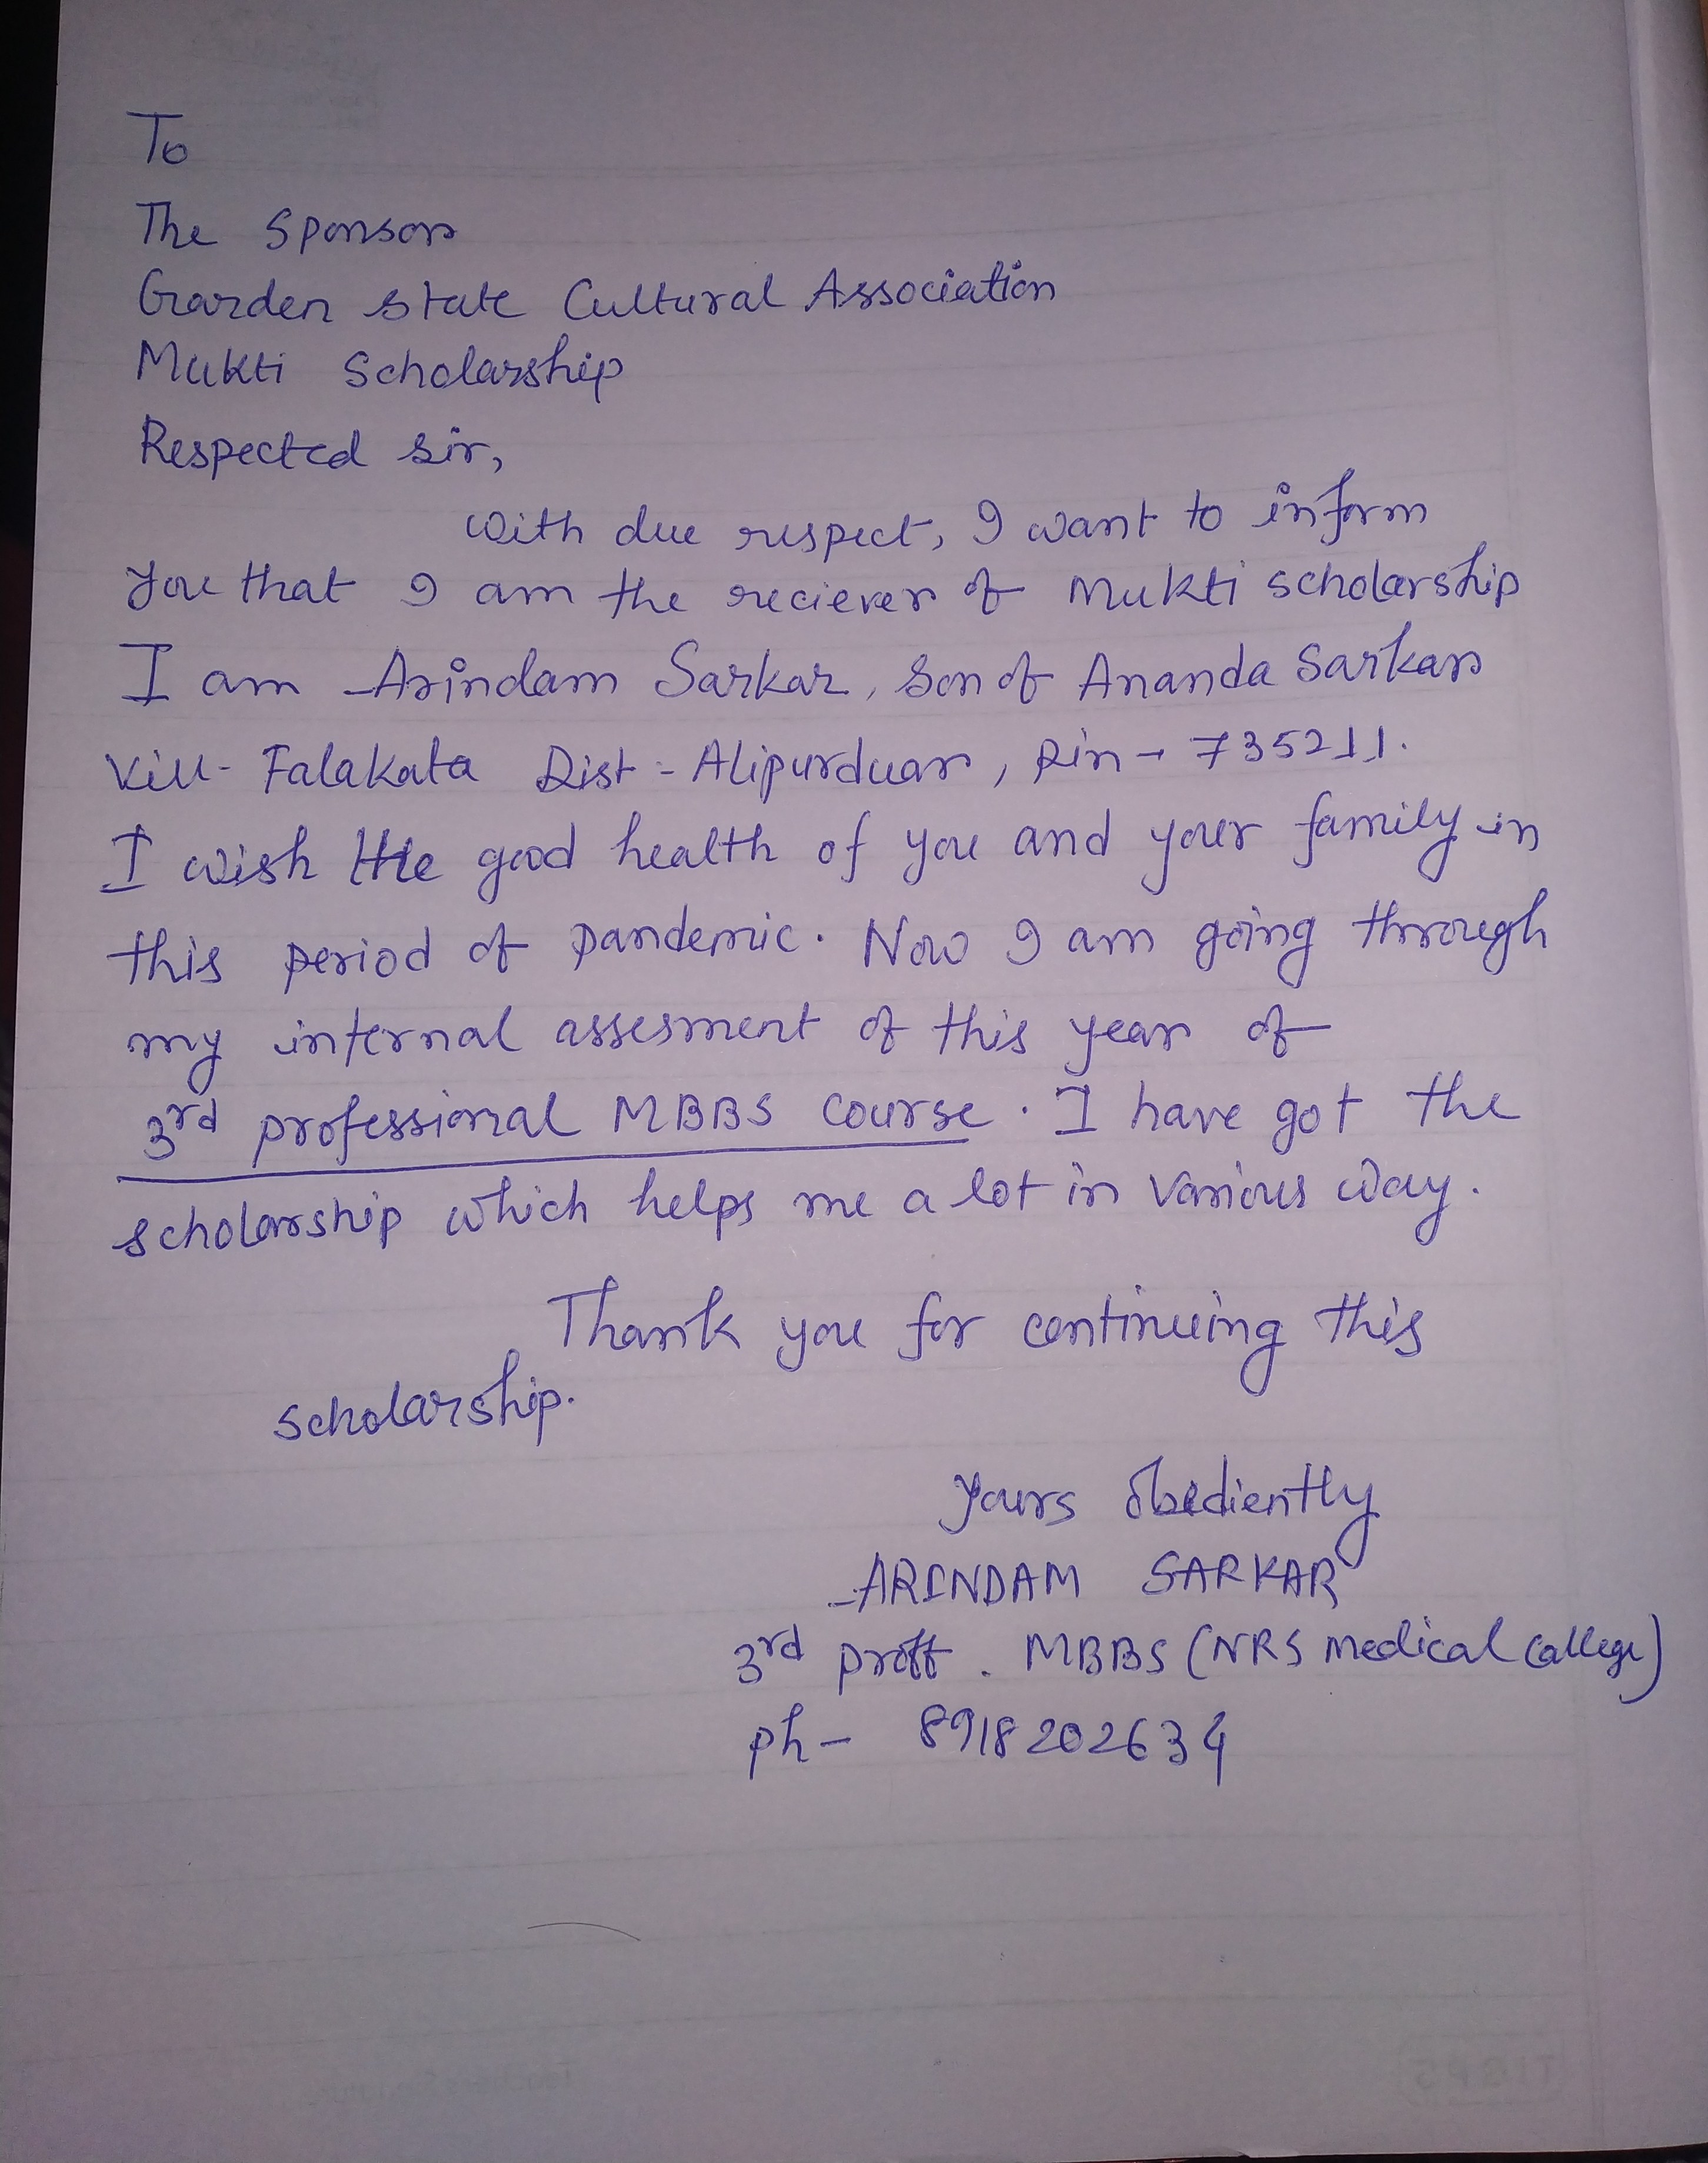 To
The Sponsor
Garden state Cultural Association
Mukti Scholarship
Respected sir,
with due respect, I want to inform
you that I am the reciever of Mukti scholarship
I am Arindam Sarkar, son of Ananda Sarkar
Vill- Falakata Dist - Alipurduar, Pin - 735211.
I wish the good health of you and your family in
this period of pandemic. Now I am going through
my internal assesment of this year of
3rd professional MBBS course. I have got the
scholarship which helps me a lot in various way.
Thank you for continuing this
scholarship.
Yours obediently
ARINDAM SARKAR
3rd proff. MBBS (NRS Medical College)
ph - 8918202634